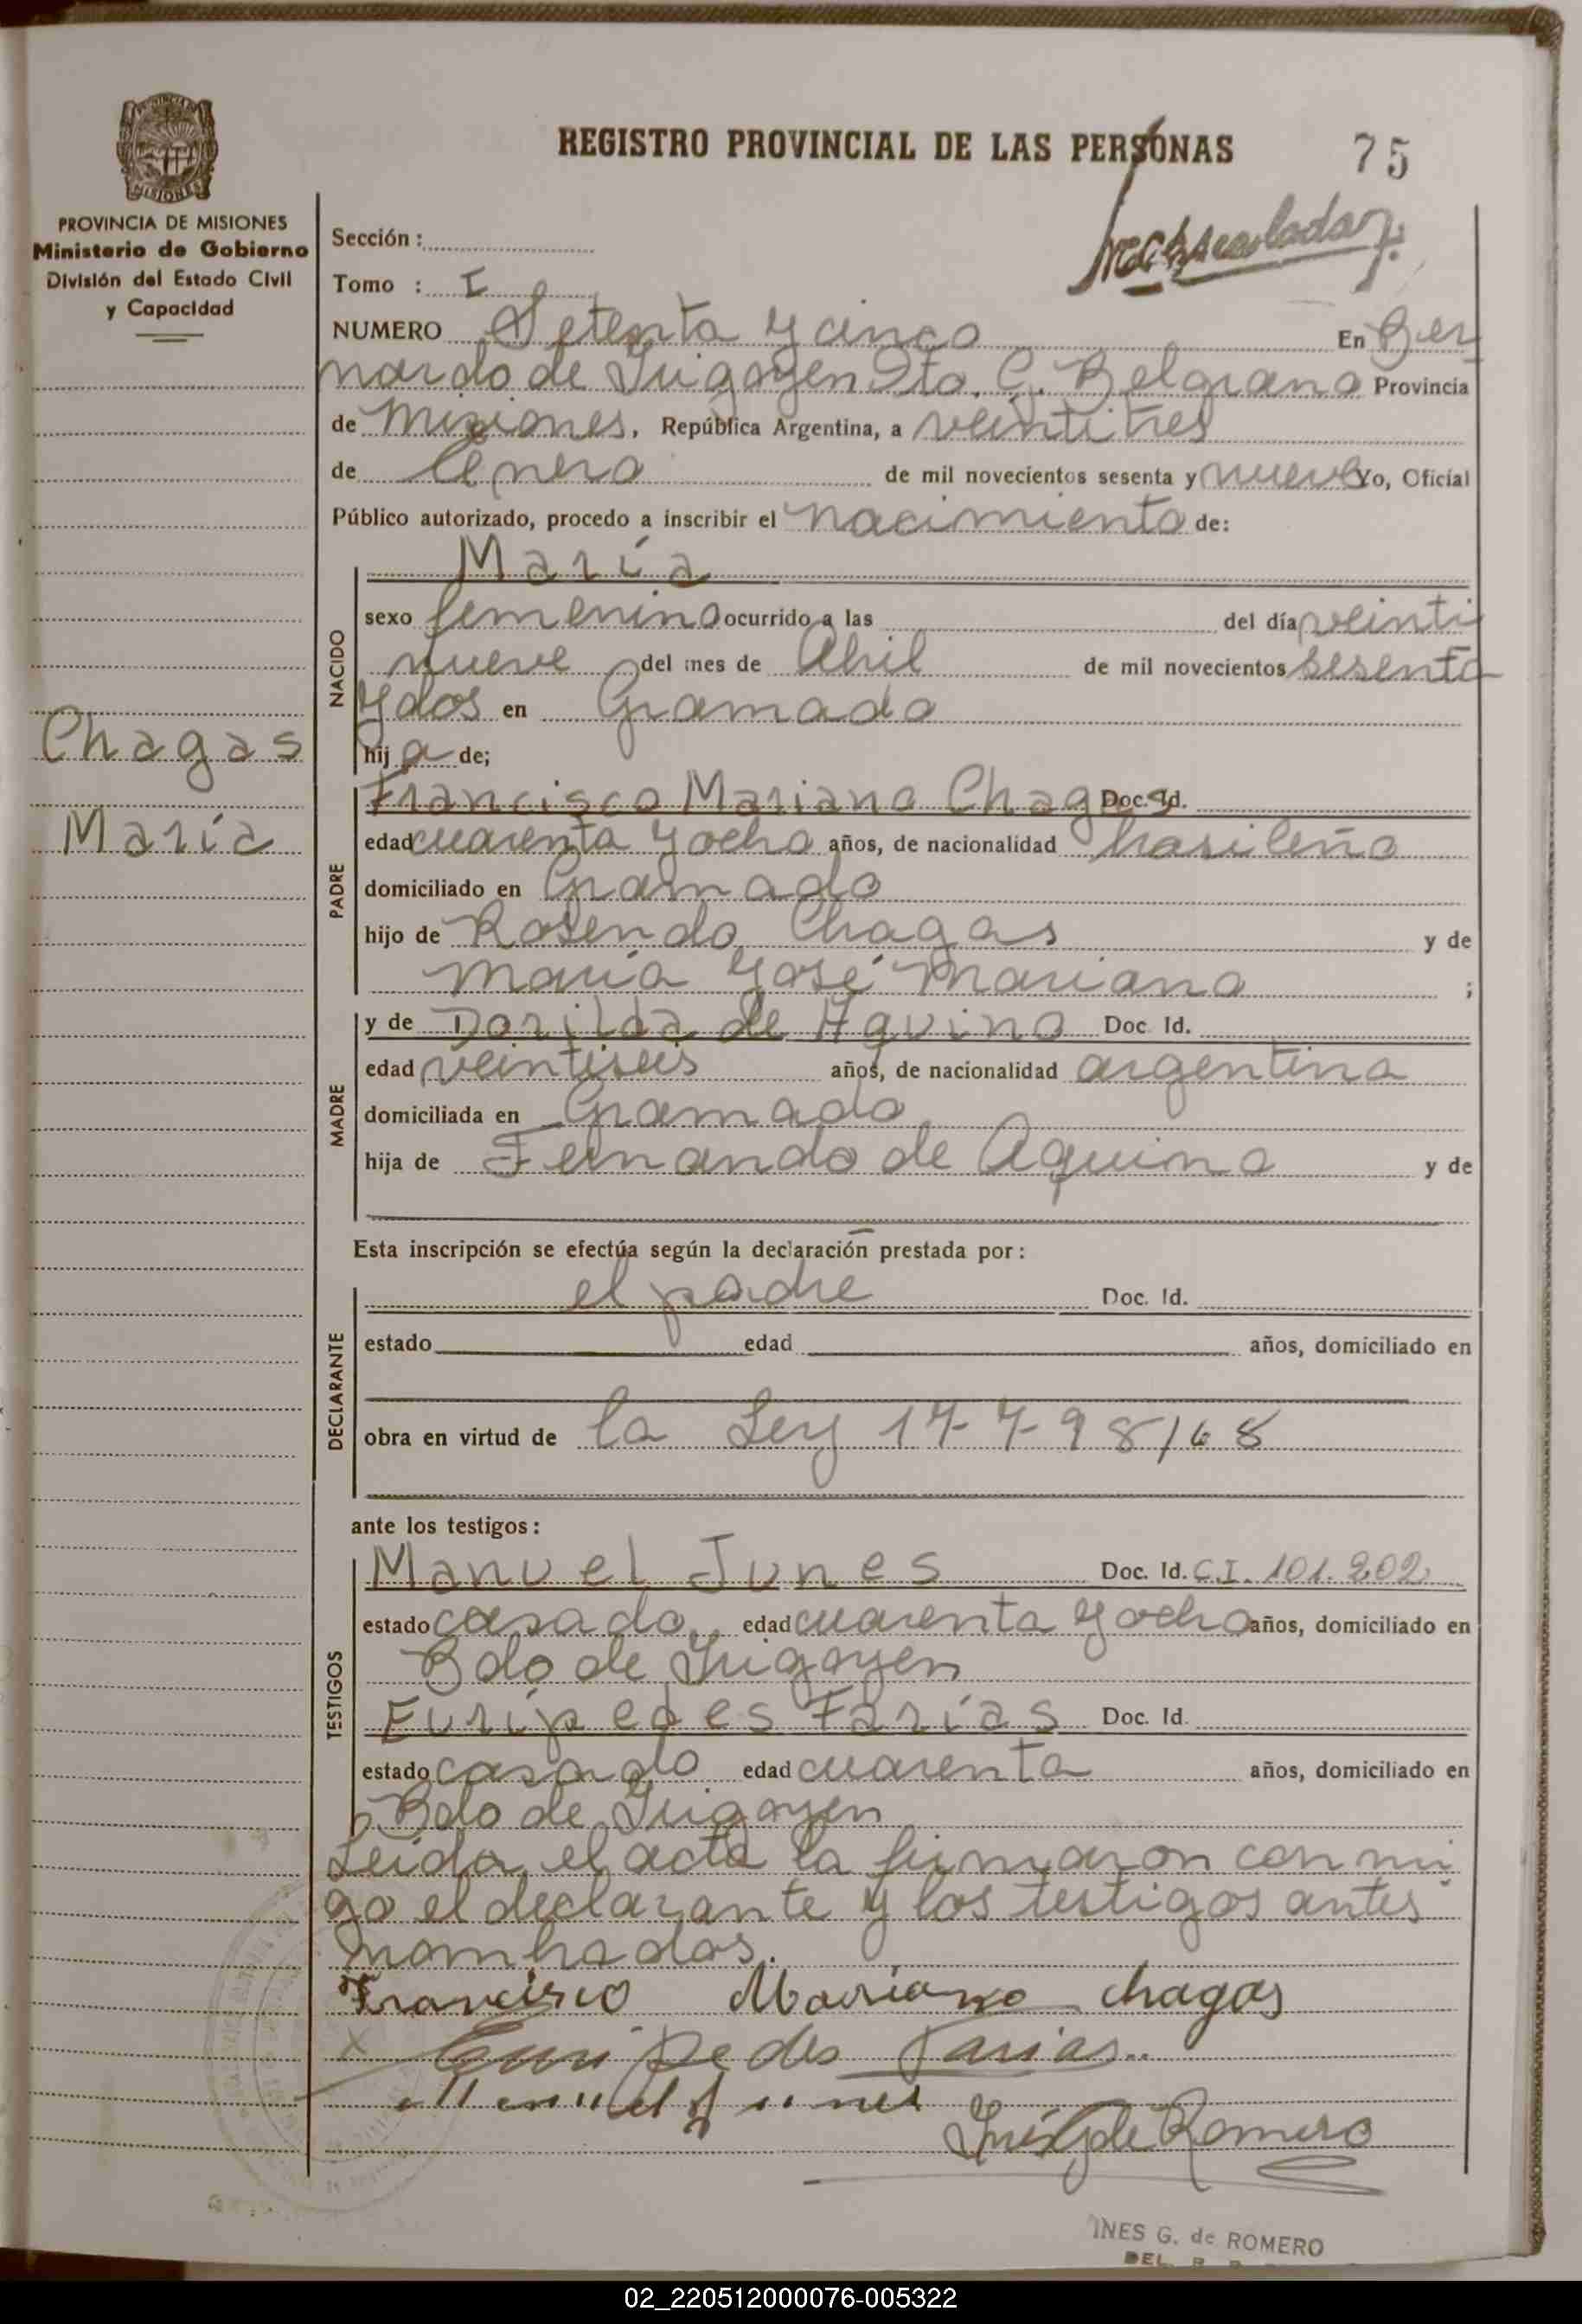 REGISTRO PROVINCIAL DE LAS PERSONAS
75
MISIONES
PROVINCIA DE MISIONES
Ministerio de Gobierno
División del Estado Civil
y Capacidad
Sección:
Tomo : I
NUMERO Setenta y cinco En Ber
nardo de Irigoyen Dto. G. Belgrano Provincia
de Misiones. República Argentina, a veintitres
de Enero de mil novecientos sesenta y nueve Yo, Oficial
Público autorizado, procedo a inscribir el nacimiento de:
María
NACIDO
sexo femenino ocurrido a las del día veinti
nueve del mes de Abril de mil novecientos sesenta
y dos en Gramado
hija de;
Chagas
María
PADRE
Francisco Mariano Chagas Doc. Id.
edad cuarenta y ocho años, de nacionalidad brasileña
domiciliado en Gramado
hijo de Rosendo Chagas y de
María José Mariano ;
MADRE
y de Dorilda de Aquino Doc. Id.
edad veintiseis años, de nacionalidad argentina
domiciliada en Gramado
hija de Fernando de Aquino y de
Esta inscripción se efectúa según la declaración prestada por:
DECLARANTE
el padre Doc. Id.
estado edad años, domiciliado en
obra en virtud de la Ley 17.798/68
ante los testigos:
TESTIGOS
Manuel Junes Doc. Id. C.I. 101.202
estado casado edad cuarenta y ocho años, domiciliado en
Bdo de Irigoyen
Euripedes Farías Doc. Id.
estado casado edad cuarenta años, domiciliado en
Bdo de Irigoyen
Leida el acta la firmaron conmi
go el declarante y los testigos antes
nombrados.
Francisco Mariano chagas
X Euripedes Farias
Manuel Junes
Inés G de Romero
INES G. de ROMERO
DEL.
02_220512000076-005322